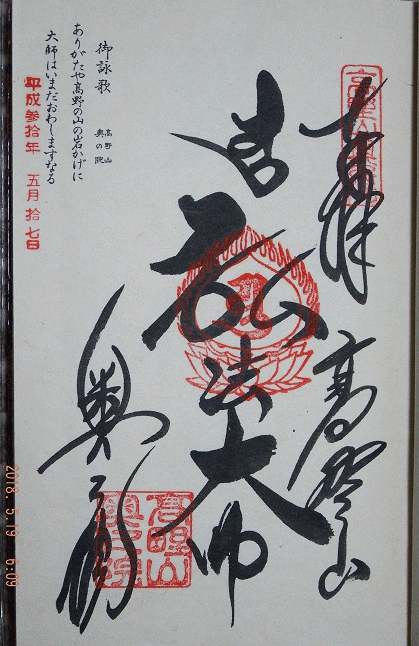 奉拝
高野山
弘法大師
奥之院
御詠歌
高野山
奥の院
ありがたや高野の山の岩かげに
大師はいまだおわしますなる
平成参拾年 五月 拾七日
高野山
奥之院
2018 5 19 6:09